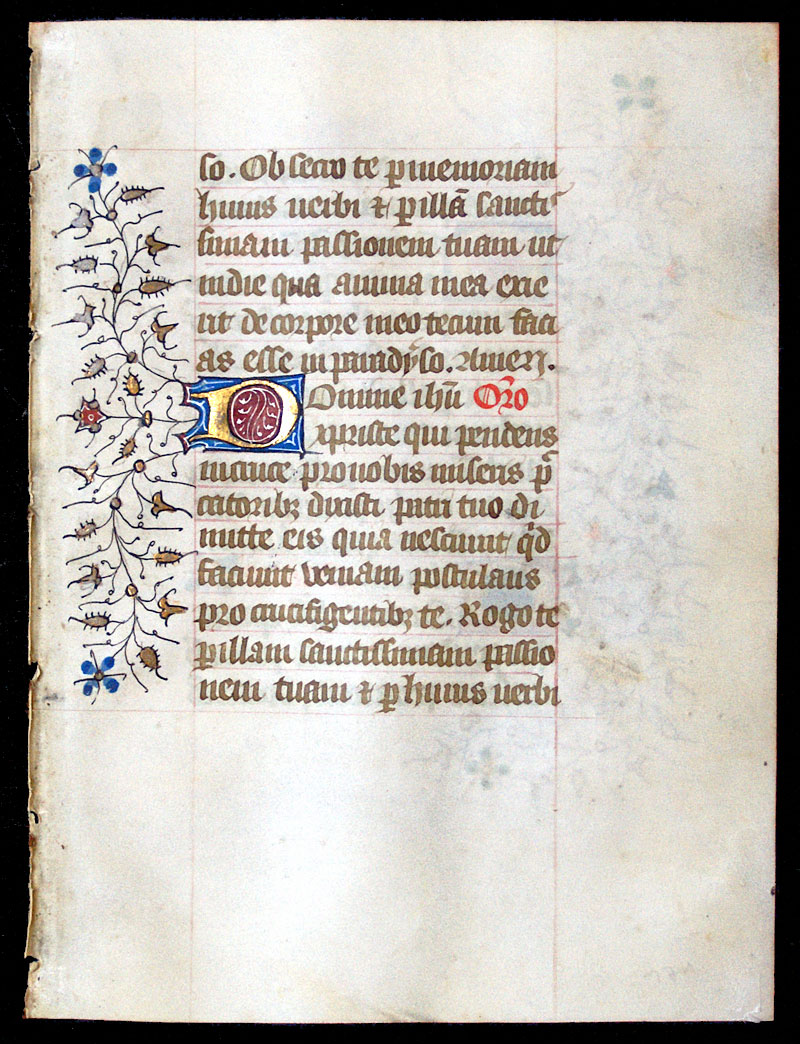 so. Obsecro te p memoriam
huius uerbi ⁊ p illā sancti
simam passionem tuam ut
in die qua anima mea exie
rit de corpore meo tecum faci
as esse in paradyso. Amen.
Domine ihū Oro
xpriste qui pendens
in cruce pro uobis miseris p̄
catoribꝫ dixisti patri tuo di
mitte eis quia nesciunt qd
faciunt veniam postulans
pro crucifigentibꝫ te. Rogo te
p illam sanctissimam passio
nem tuam ⁊ p huius uerbi